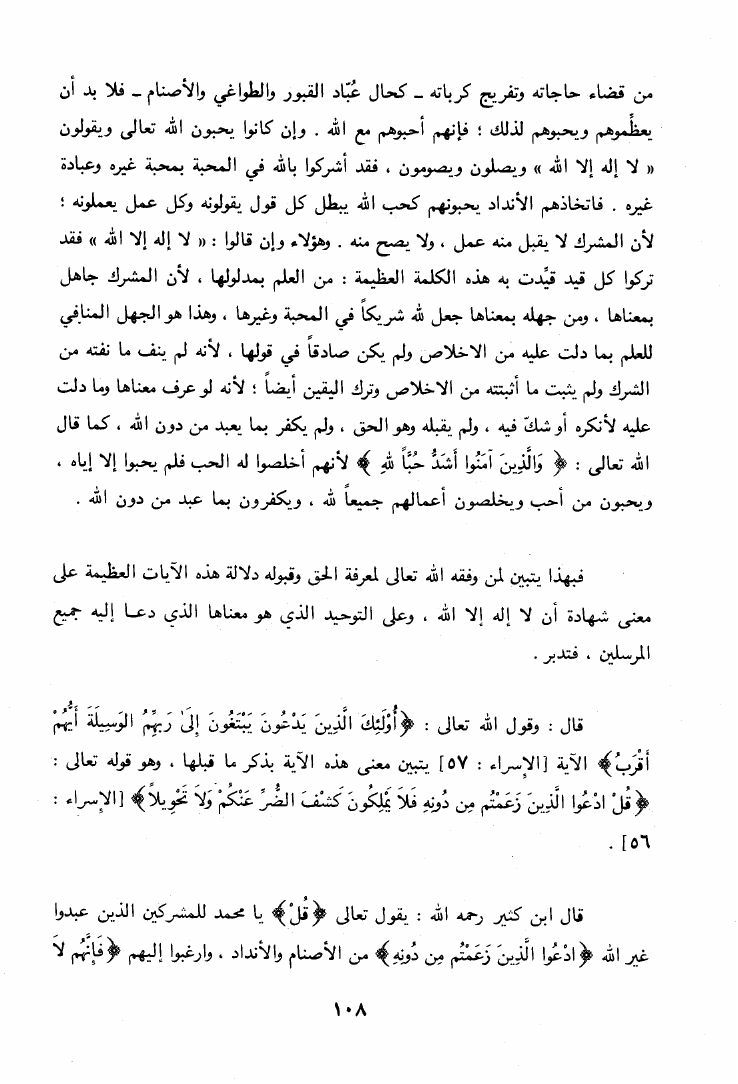 من قضاء حاجاته وتفريج كرباته ـ كحال عُبّاد القبور والطواغي والأصنام ـ فلا بد أن
يعظِّموهم ويحبوهم لذلك ؛ فإنهم أحبوهم مع الله . وإن كانوا يحبون الله تعالى ويقولون
« لا إله إلا الله » ويصلون ويصومون ، فقد أشركوا بالله في المحبة بمحبة غيره وعبادة
غيره . فاتخاذهم الأنداد يحبونهم كحب الله يبطل كل قول يقولونه وكل عمل يعملونه ؛
لأن المشرك لا يقبل منه عمل ، ولا يصح منه . وهؤلاء وإن قالوا : « لا إله إلا الله » فقد
تركوا كل قيد قيِّدت به هذه الكلمة العظيمة : من العلم بمدلولها ، لأن المشرك جاهل
بمعناها ، ومن جهله بمعناها جعل لله شريكاً في المحبة وغيرها ، وهذا هو الجهل المنافي
للعلم بما دلت عليه من الاخلاص ولم يكن صادقاً في قولها ، لأنه لم ينف ما نفته من
الشرك ولم يثبت ما أثبتته من الاخلاص وترك اليقين أيضاً ؛ لأنه لو عرف معناها وما دلت
عليه لأنكره أو شكّ فيه ، ولم يقبله وهو الحق ، ولم يكفر بما يعبد من دون الله ، كما قال
الله تعالى : ﴿ وَالَّذِينَ آمَنُوا أَشَدُّ حُبَّاً للهِ ﴾ لأنهم أخلصوا له الحب فلم يحبوا إلا إياه ،
ويحبون من أحب ويخلصون أعمالهم جميعاً لله ، ويكفرون بما عبد من دون الله .
فبهذا يتبين لمن وفقه الله تعالى لمعرفة الحق وقبوله دلالة هذه الآيات العظيمة على
معنى شهادة أن لا إله إلا الله ، وعلى التوحيد الذي هو معناها الذي دعا إليه جميع
المرسلين ، فتدبر .
قال : وقول الله تعالى : ﴿أُوْلَئِكَ الَّذِينَ يَدْعُونَ يَبْتَغُونَ إِلَىٰ رَبِّهِمُ الوَسِيلَةَ أَيُّهُمْ
أَقْرَبُ﴾ الآية [الإسراء : ٥٧] يتبين معنى هذه الآية بذكر ما قبلها ، وهو قوله تعالى :
﴿قُلْ ادْعُوا الَّذِينَ زَعَمْتُم مِن دُونِهِ فَلاَ يَمْلِكُونَ كَشْفَ الضُّرِّ عَنْكُمْ وَلاَ تَحْوِيلاً﴾ [الإسراء :
٥٦] .
قال ابن كثير رحمه الله : يقول تعالى ﴿قُلْ﴾ يا محمد للمشركين الذين عبدوا
غير الله ﴿ادْعُوا الَّذِينَ زَعَمْتُم مِن دُونِهِ﴾ من الأصنام والأنداد ، وارغبوا إليهم ﴿فَإِنَّهُم لاَ
١٠٨